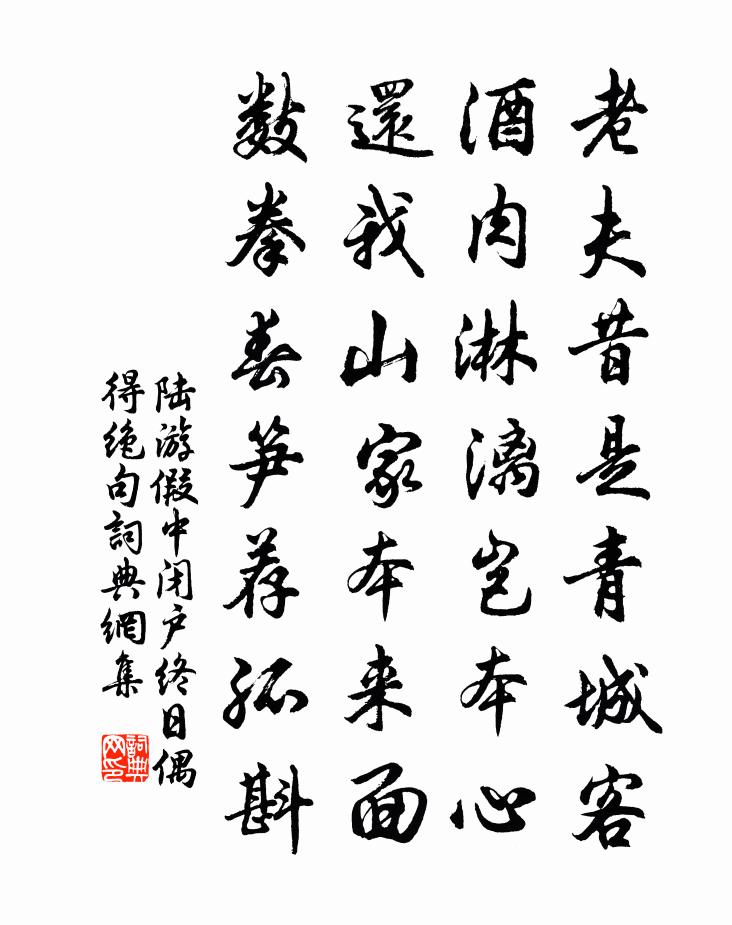 老夫昔是青城客
酒肉淋漓岂本心
還我山家本来面
数拳春笋荐孤斟
陆游假中闭户终日偶
得绝句詞典網集
詞典
网印